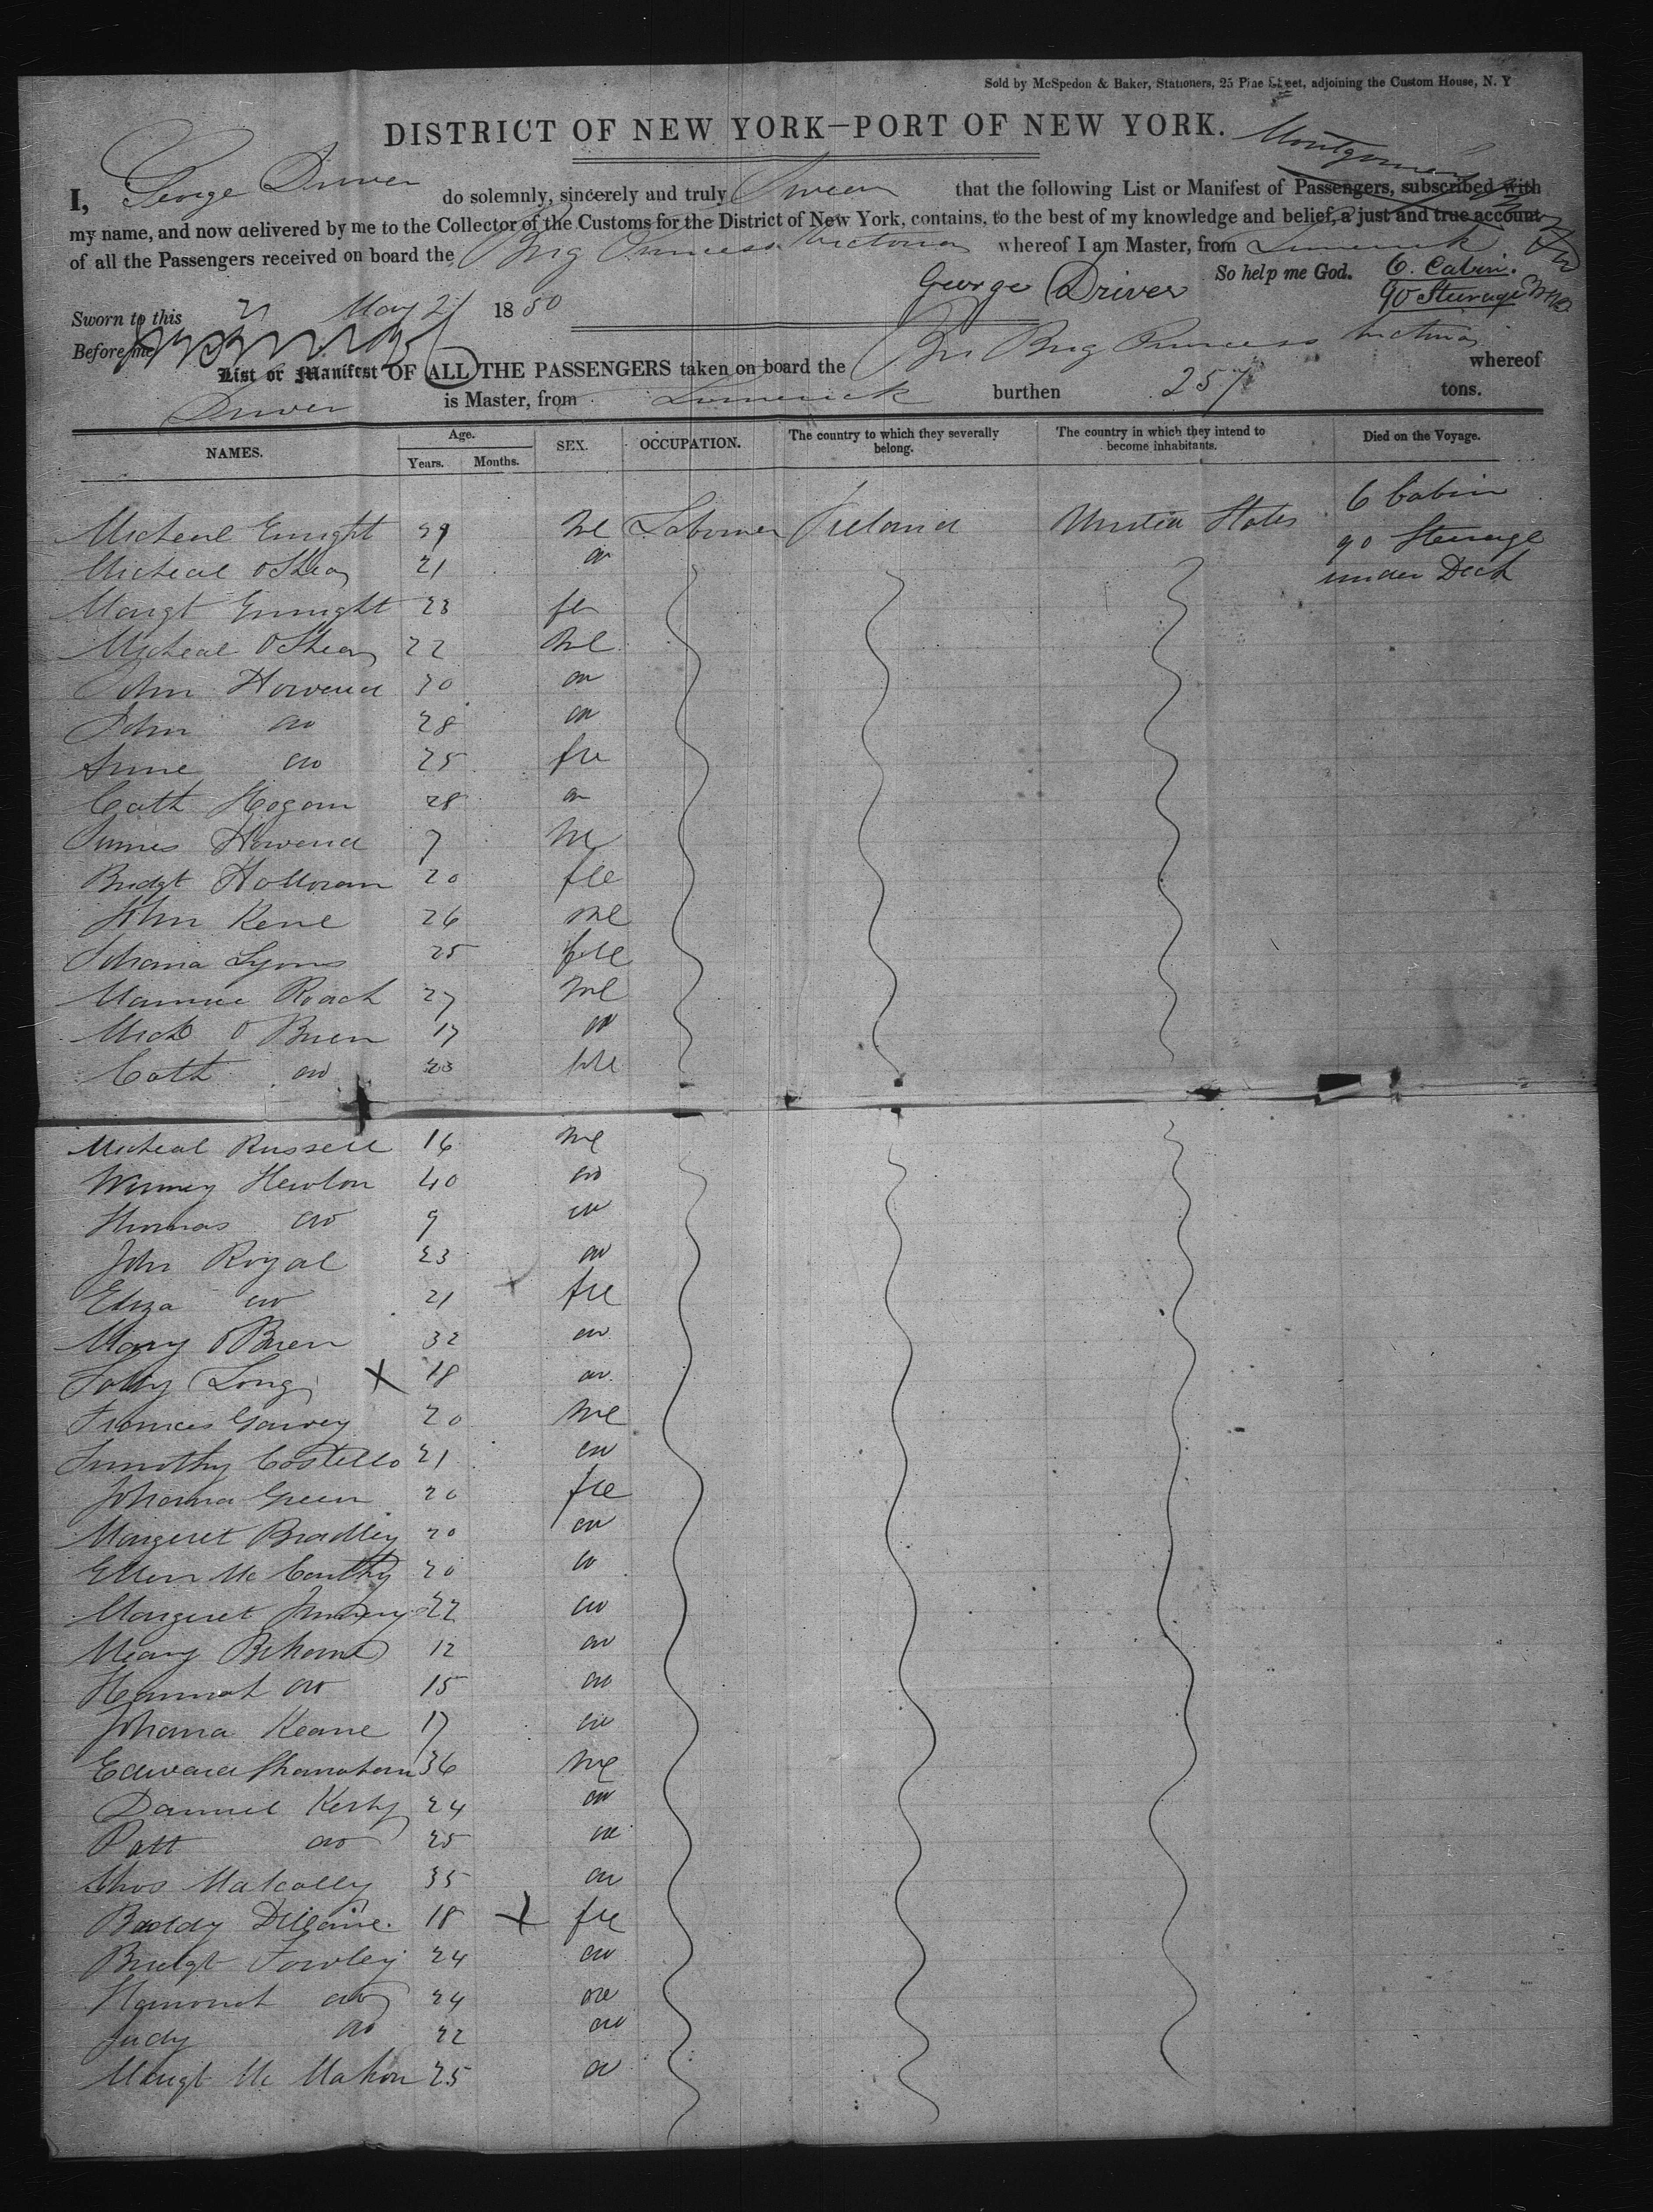 Sold by McSpedon & Baker, Stationers, 25 Pine Street, adjoining the Custom House, N. Y
DISTRICT OF NEW YORK—PORT OF NEW YORK.
I, George Driver do solemnly, sincerely and truly Swear that the following List or Manifest of Passengers, subscribed with
my name, and now delivered by me to the Collector of the Customs for the District of New York, contains, to the best of my knowledge and belief, a just and true account
of all the Passengers received on board the Brig Princess Victoria whereof I am Master, from Limerick
So help me God. 6. Cabin.
George Driver 90 Steerage
Sworn to this 21 May 21 1850
Before me
List or Manifest OF ALL THE PASSENGERS taken on board the Br Brig Princess Victoria whereof
Driver is Master, from Limerick burthen 257 tons.
NAMES. Age. Years. Months. SEX. OCCUPATION. The country to which they severally belong. The country in which they intend to become inhabitants. Died on the Voyage.
6 Cabin
Micheal Enright 29 Me Labourer Ireland United States
90 Steerage
Micheal OShea 21 do
under Deck
Margt Enright 23 fe
Micheal OShea 22 Me
John Howard 30 do
John do 28 do
Anne do 25 fe
Cath Hogan 28 do
James Howard 7 M
Bridgt Holloran 20 fle
John Kene 26 Me
Johana Lyons 25 fle
Maurice Roach 27 Me
Mick O Brien 17 do
Cath do 23 fle
Micheal Russell 16 Me
Winney Hewlon 40 do
Thomas do 9 do
John Royal 23 do
Eliza do 21 fle
Mary OBrien 32 do
Long X 18 do
Frances Garvey 20 Me
Timothy Costello 21 do
Johanna Green 20 fle
Margeret Bradley 20 do
Ellen Mc Carthy 20 do
Margeret 22 do
Mary 12 do
Hannah do 15 do
Johana Keane 17 do
Edward Shanahan 36 Me
Daniel Kerby 24 do
Patt do 25 do
Thos Malcolly 35 do
18 X fle
Bridgt Fowley 24 do
Hannah do 24 do
Judy do 22 do
Margt Mc Mahon 25 do